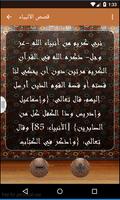 1:33
قصص الأنبياء
نبي كريم من أنبياء الله -عز
وجل- ذكره الله في القرآن
الكريم مرتين دون أن يحكي لنا
قصته أو قصة القوم الذين أرسل
إليهم، قال تعالى: {وإسماعيل
وإدريس وذا الكفل كل من
الصابرين} [الأنبياء: 85] وقال
تعالى: {واذكر في الكتاب